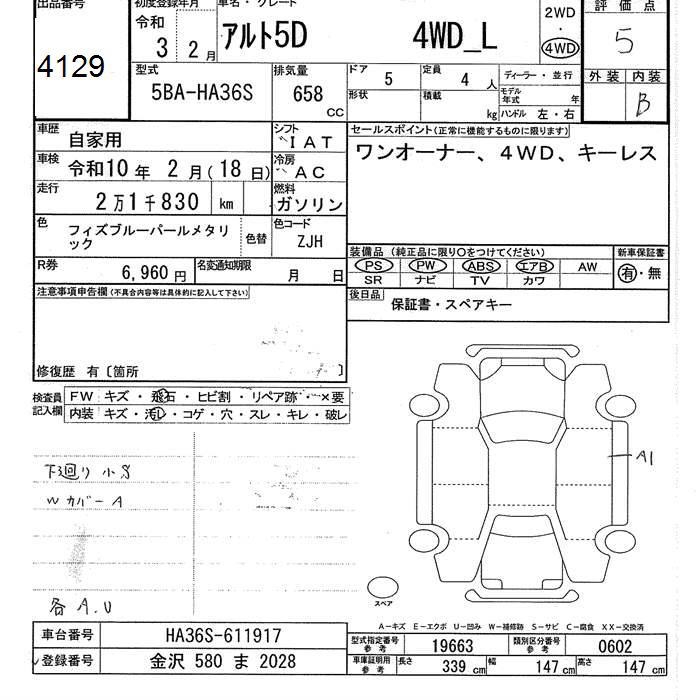 出品番号 初度登録年月 車名・グレード 評価点
4129 令和 3 2月 アルト5D 4WD_L 2WD ・ 4WD 5
型式 5BA-HA36S 排気量 658 CC ドア 5 定員 4 人 ディーラー・並行 外装 内装
形状 積載 kg モデル年式 年 ハンドル 左・右 B
車歴 自家用 シフト IAT セールスポイント(正常に機能するものに限ります)
車検 令和10年 2月(18日) 冷房 AC ワンオーナー、4WD、キーレス
走行 2万1千830 km 燃料 ガソリン
色 フィズブルーパールメタリ
ック 色替 色コード ZJH
装備品 (純正品に限り○をつけてください) 新車保証書
PS PW ABS エアB AW 有・無
SR ナビ TV カワ
R券 6,960円 名変通知期限 月 日
後日品 保証書・スペアキー
注意事項申告欄(不具合内容等は具体的に記入して下さい)
修復歴 有〔箇所 〕
検査員記入欄 FW キズ・飛石・ヒビ割・リペア跡・×要
内装 キズ・汚し・コゲ・穴・スレ・キレ・破レ
A1
下廻り小S
Wカバ-A
各A.U
スペア
A-キズ E-エクボ U-凹み W-補修跡 S-サビ C-腐食 XX-交換済
車台番号 HA36S-611917
型式指定番号 参考 19663 類別区分番号 参考 0602
登録番号 金沢 580 ま 2028
車庫証明用 参考 長さ 339 cm 幅 147 cm 高さ 147 cm